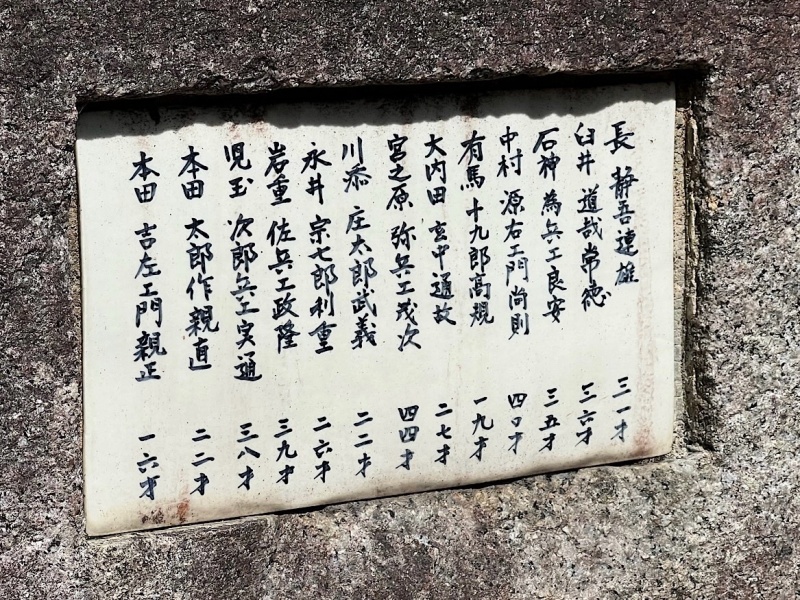 長 静吾連雄 三一才
臼井 道哉常徳 三六才
石神 為兵エ良安 三五才
中村 源右エ門尚則 四〇才
有馬 十九郎高規 一九才
大内田 玄中通故 二七才
宮之原 弥兵エ茂次 四四才
川添 庄太郎武義 二二才
永井 宗七郎利重 二六才
岩重 佐兵エ政隆 三九才
児玉 次郎兵エ実通 三八才
本田 太郎作親直 二二才
本田 吉左エ門親正 一六才